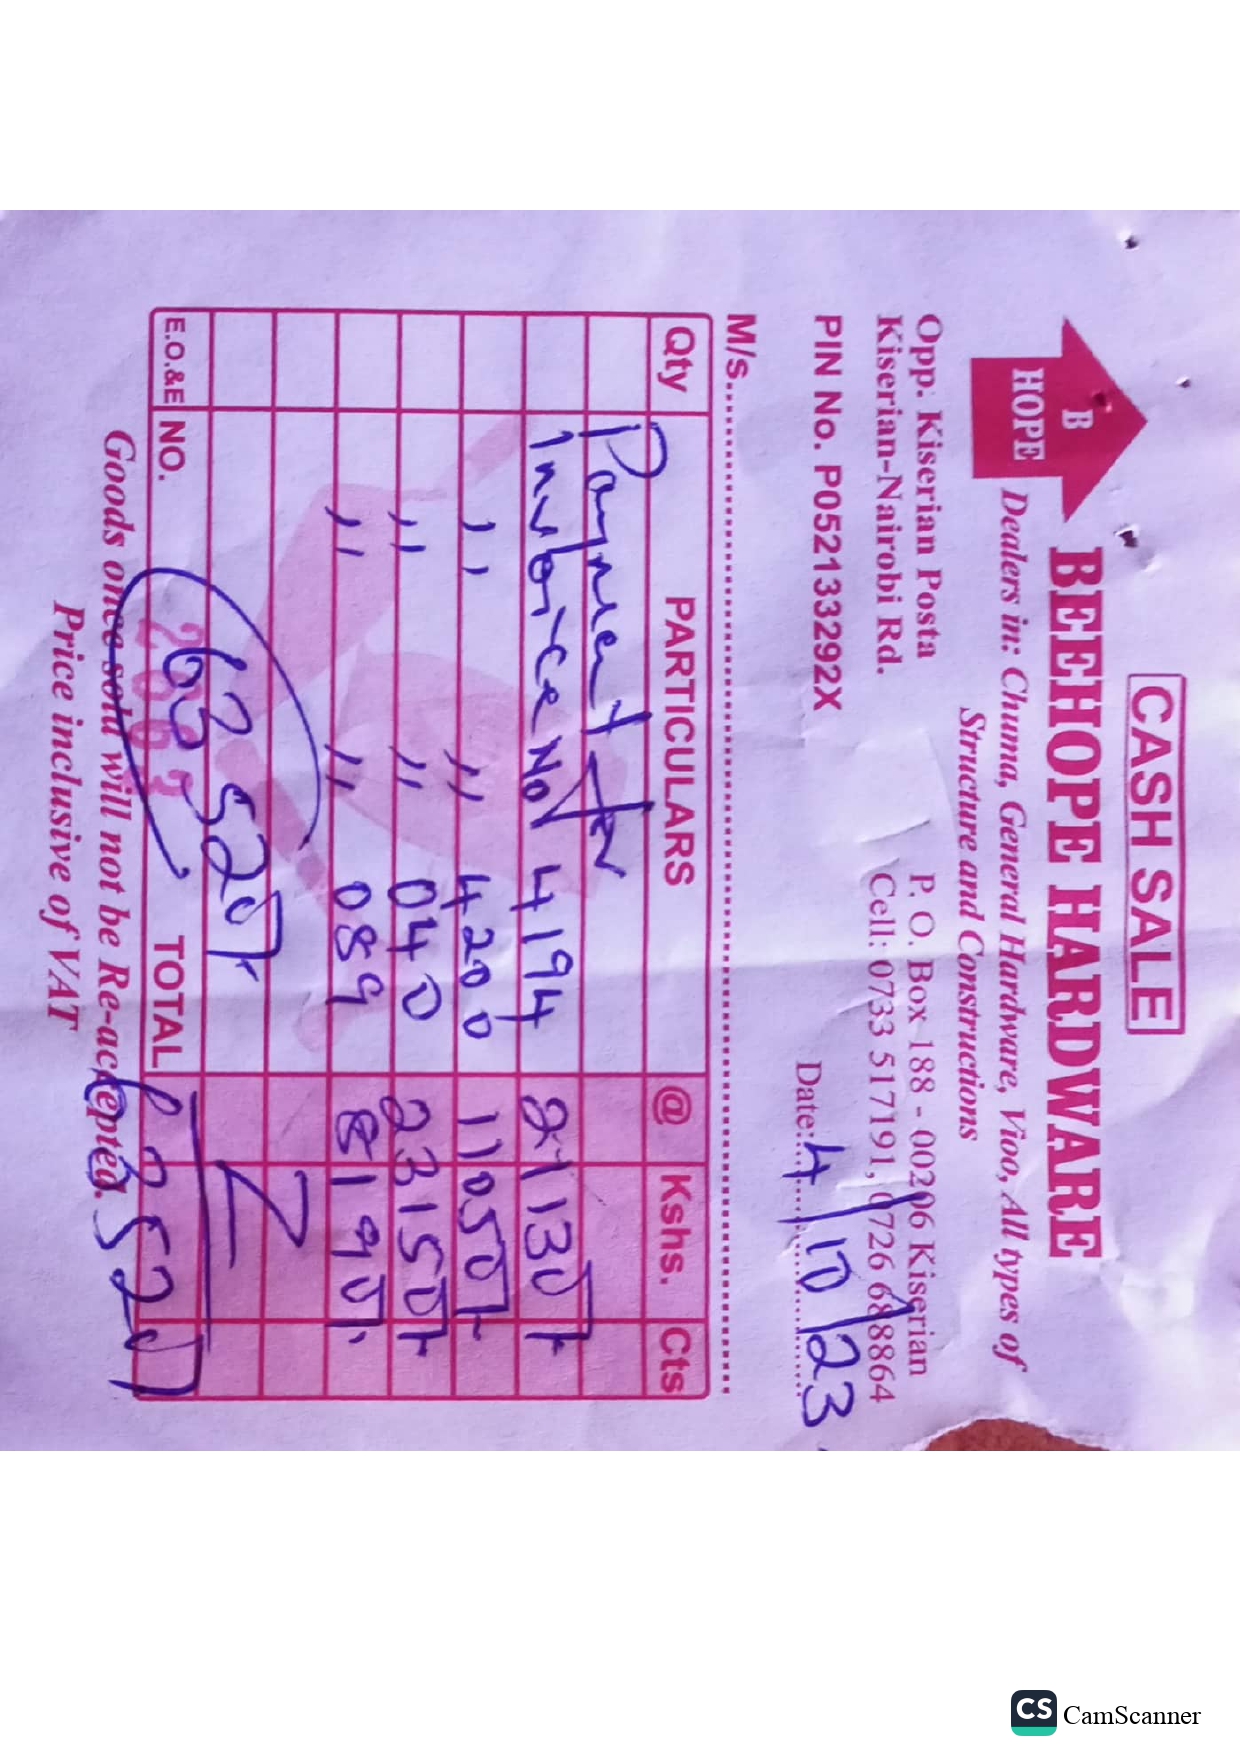 CASH SALE
B
HOPE
BEEHOPE HARDWARE
Dealers in: Chuma, General Hardware, Vioo, All types of
Structure and Constructions
Opp. Kiserian Posta
Kiserian-Nairobi Rd.
P. O. Box 188 - 00206 Kiserian
Cell: 0733 517191, 0726 688864
PIN No. P052133292X
Date: 4/10/23
M/s.
Qty PARTICULARS @ Kshs. Cts
Payment for
Invoice No 4194 21130/-
" " 4200 11050/-
" " 040 23150/-
" " 089 8190/-
63520/-
E.O.&E NO. TOTAL 63520/-
Goods once sold will not be Re-accepted.
Price inclusive of VAT
CS CamScanner